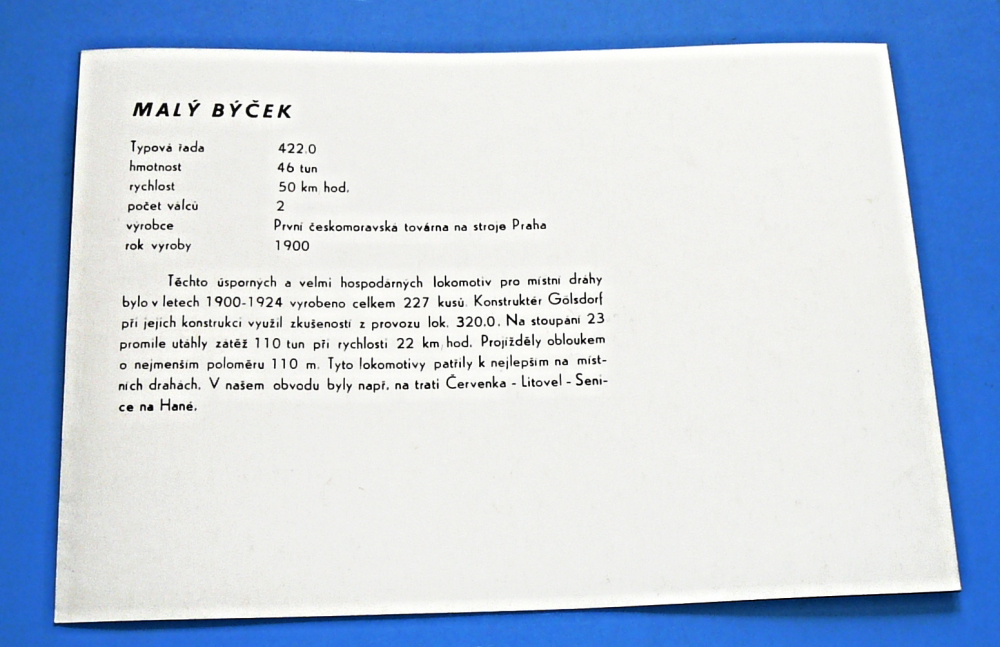 MALÝ BÝČEK
Typová řada 422.0
hmotnost 46 tun
rychlost 50 km hod.
počet válců 2
výrobce První českomoravská továrna na stroje Praha
rok výroby 1900
Těchto úsporných a velmi hospodárných lokomotiv pro místní dráhy
bylo v letech 1900-1924 vyrobeno celkem 227 kusů. Konstruktér Gölsdorf
při jejich konstrukci využil zkušeností z provozu lok. 320.0. Na stoupání 23
promile utáhly zátěž 110 tun při rychlosti 22 km/hod. Projížděly obloukem
o nejmenším poloměru 110 m. Tyto lokomotivy patřily k nejlepším na míst-
ních drahách. V našem obvodu byly např. na trati Červenka - Litovel - Seni-
ce na Hané.